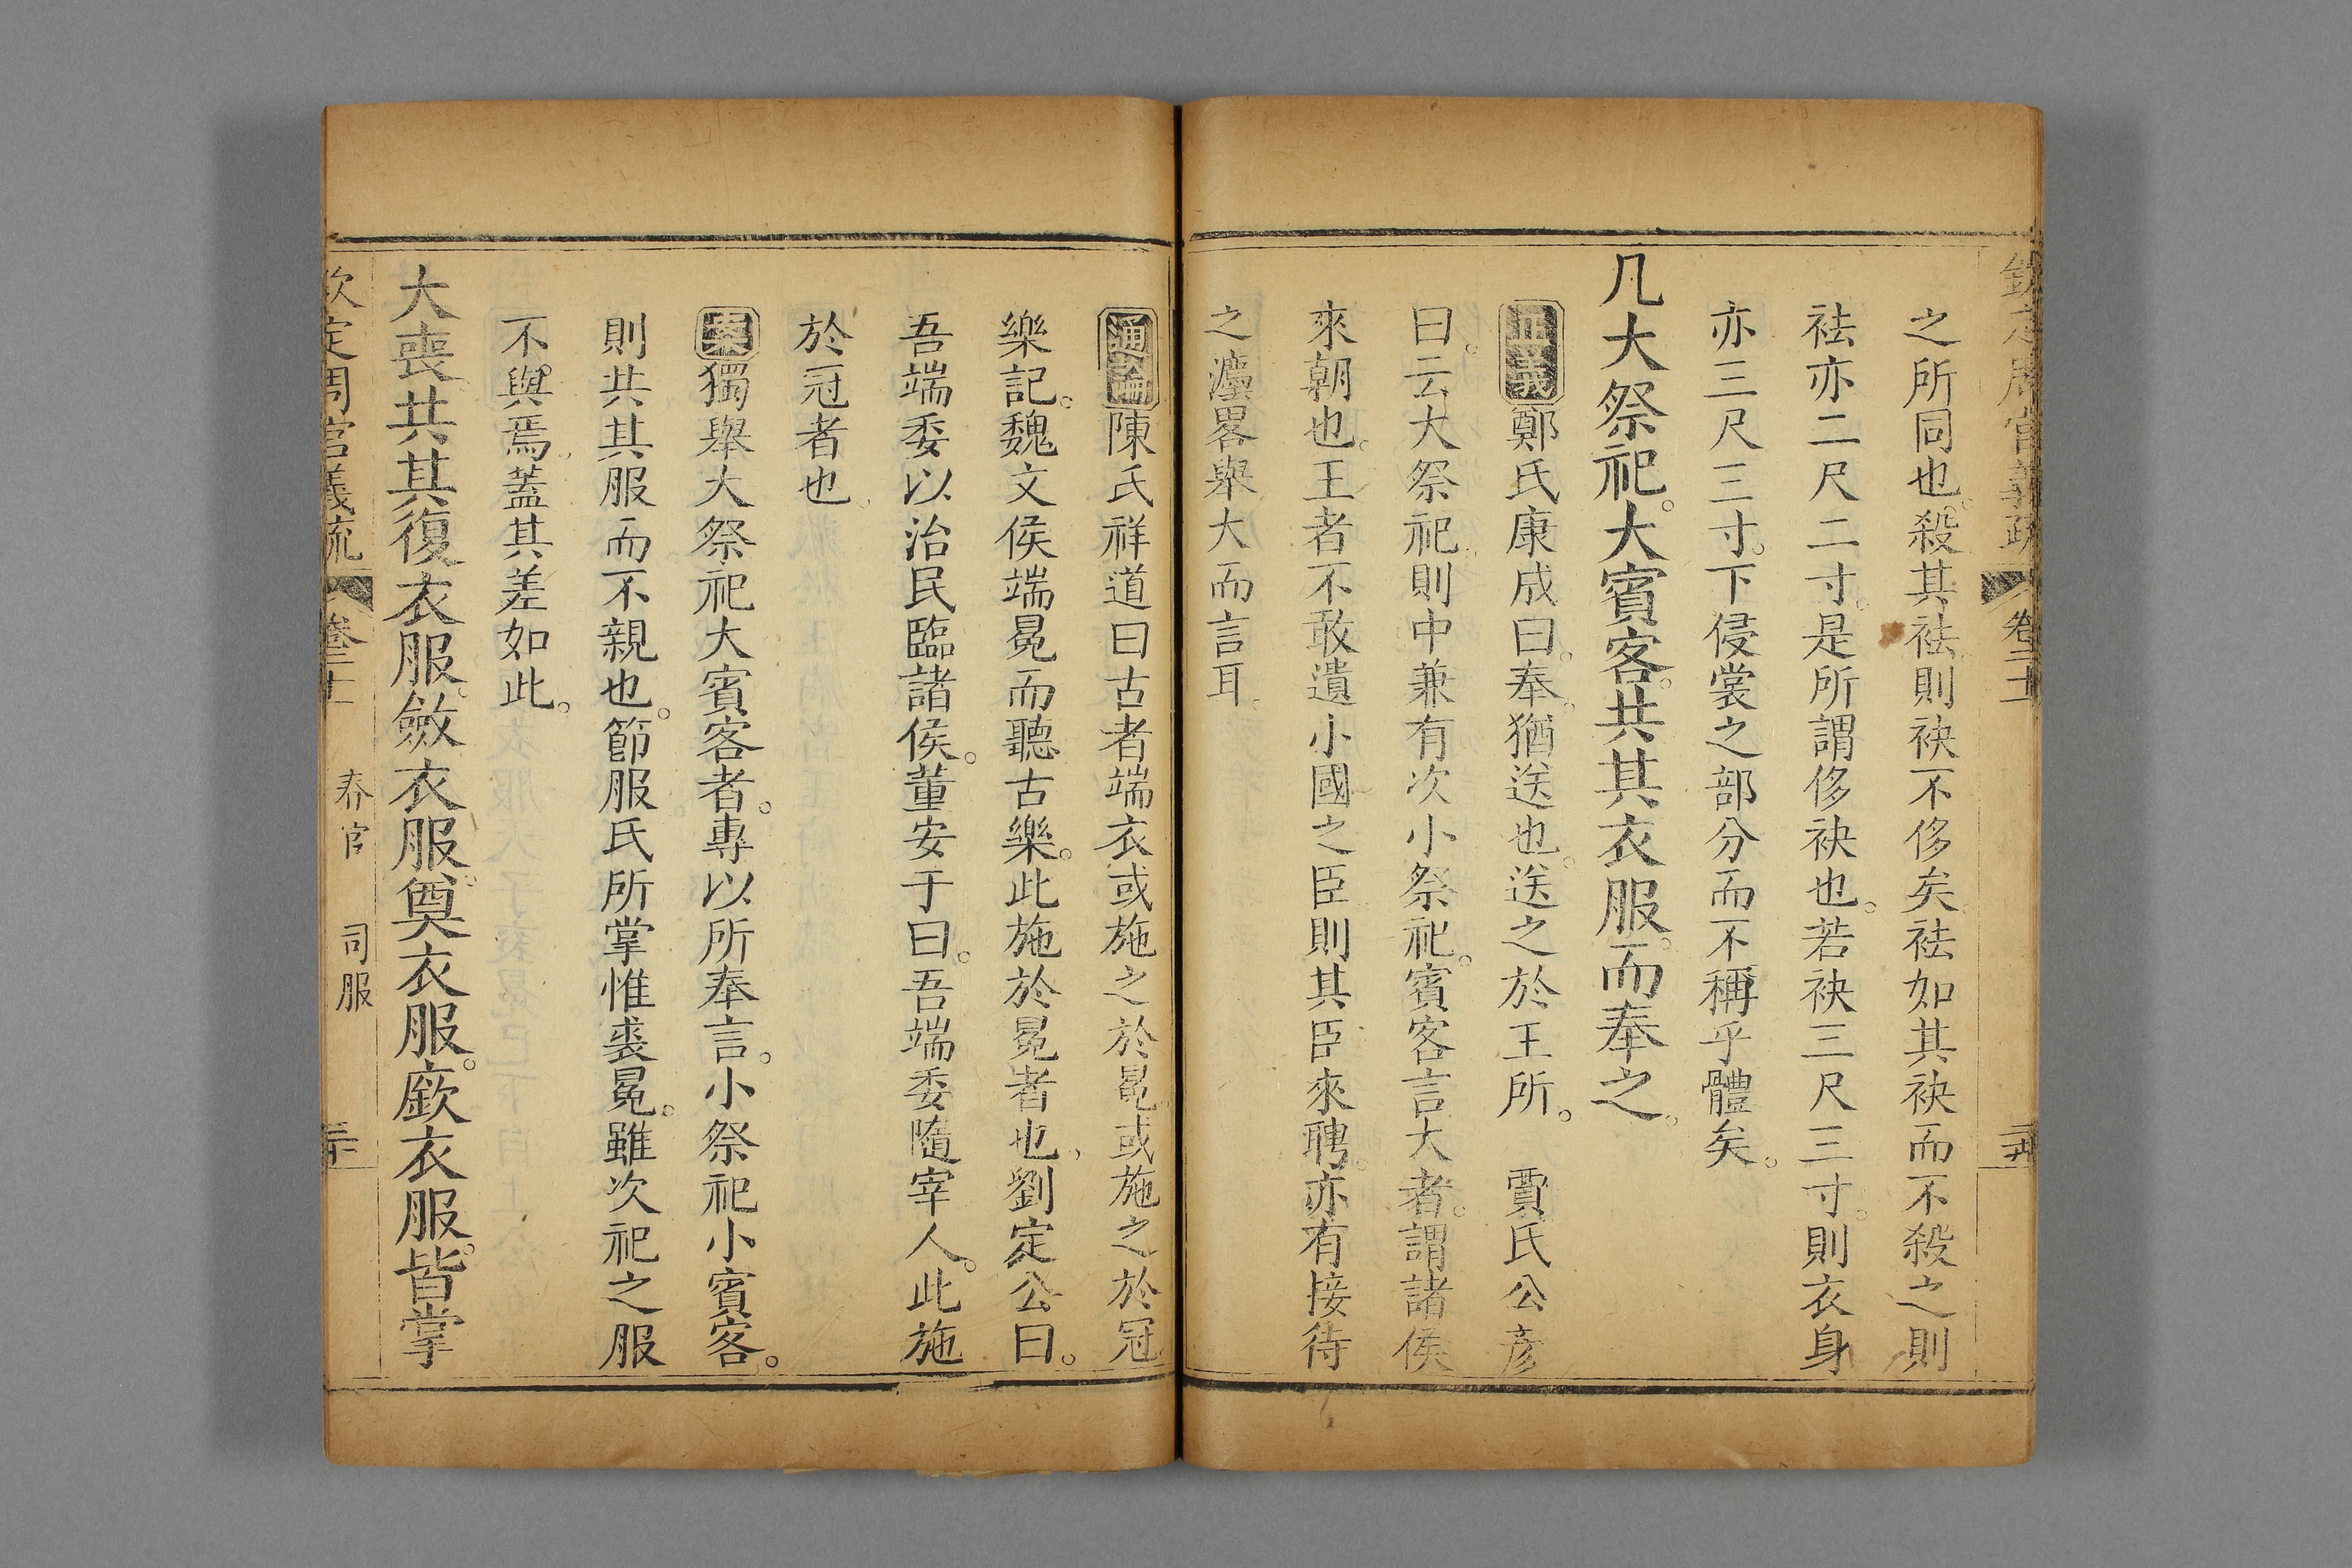 欽定周官義疏 卷二十一
之所同也。殺其袪則袂不侈矣袪如其袂而不殺之則
袪亦二尺二寸。是所謂侈袂也。若袂三尺三寸。則衣身
亦三尺三寸。下侵裳之部分而不稱乎體矣。
凡大祭祀。大賓客。共其衣服。而奉之。
正義鄭氏康成曰。奉。猶送也。送之於王所。 賈氏公彥
曰。云大祭祀。則中兼有次小祭祀。賓客言大者。謂諸侯
來朝也。王者不敢遺小國之臣則其臣來聘。亦有接待
之灋畧舉大而言耳。
通論陳氏祥道曰古者端衣或施之於冕。或施之於冠。
樂記。魏文侯端冕而聽古樂。此施於冕者也。劉定公曰。
吾端委以治民臨諸侯。董安于曰。吾端委隨宰人。此施
於冠者也。
案獨舉大祭祀大賓客者。專以所奉言。小祭祀小賓客。
則共其服而不親也。節服氏所掌惟裘冕。雖次祀之服
不與焉。蓋其差如此。
大喪。共其復衣服。斂衣服。奠衣服。廞衣服。皆掌
欽定周官義疏 卷二十一 春官 司服 三十